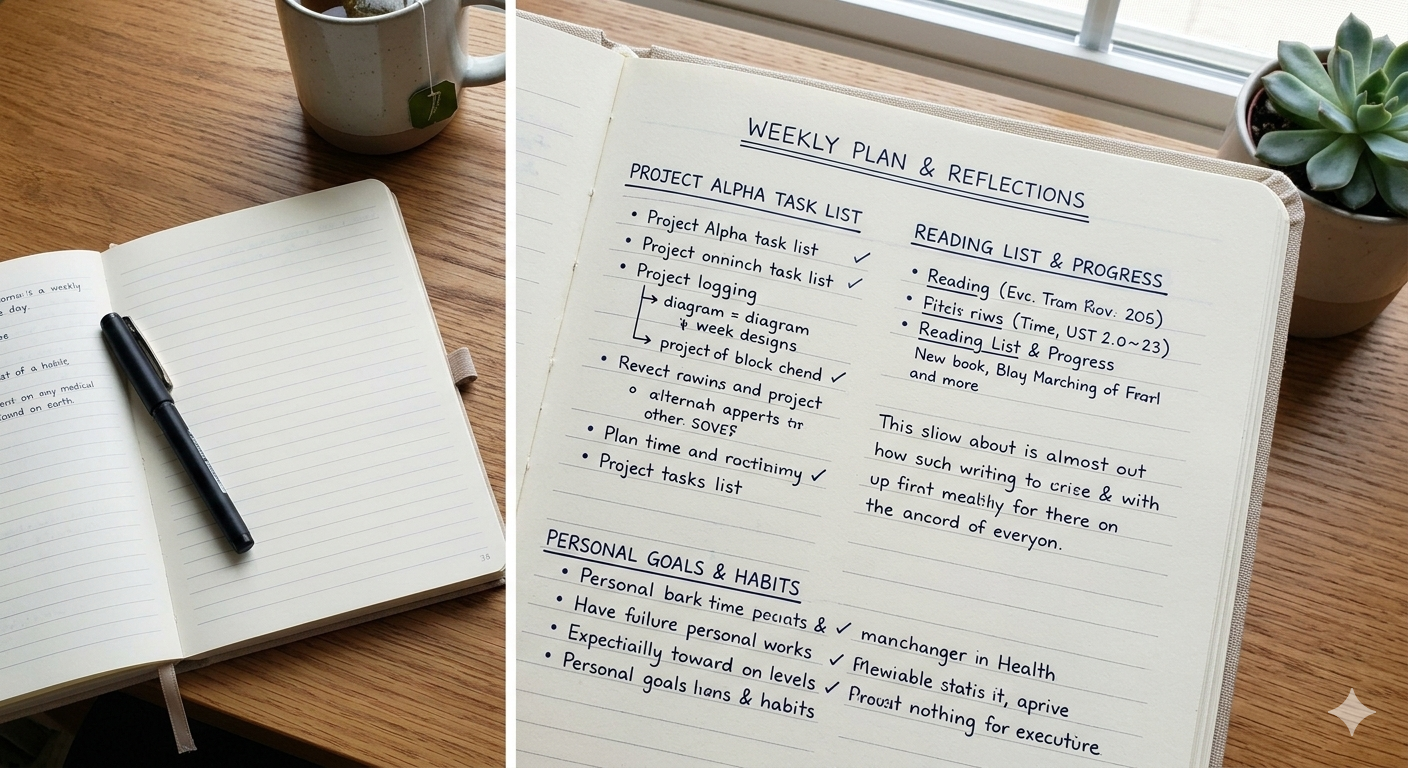 is a weekly
day.
of a hobile,
ent on any medical
on earth.
38
WEEKLY PLAN & REFLECTIONS
PROJECT ALPHA TASK LIST
• Project Alpha task list ✓
• Project onninch task list ✓
• Project logging
↳ diagram = diagram
week designs
↳ project of block chend ✓
• Revect rawins and project
○ alternah apperts
other. SOVES
• Plan time and roctinimy ✓
• Project tasks list
READING LIST & PROGRESS
• Reading (Evc. Tram Rov. 205)
• Fiteis riws (Time, UST 2.0~23)
• Reading List & Progress
New book, Blay Marching of Frarl
and more
This sliow about is almost out
how such writing to crise & with
up firnt mealihy for there on
the ancord of everyon.
PERSONAL GOALS & HABITS
• Personal bark time peciats & ✓ manchanger in Health
• Have fuilure personal works ✓ statis it, aprive
• Expectiailly toward on levels ✓ nothing for execution
• Personal goals lians & habits